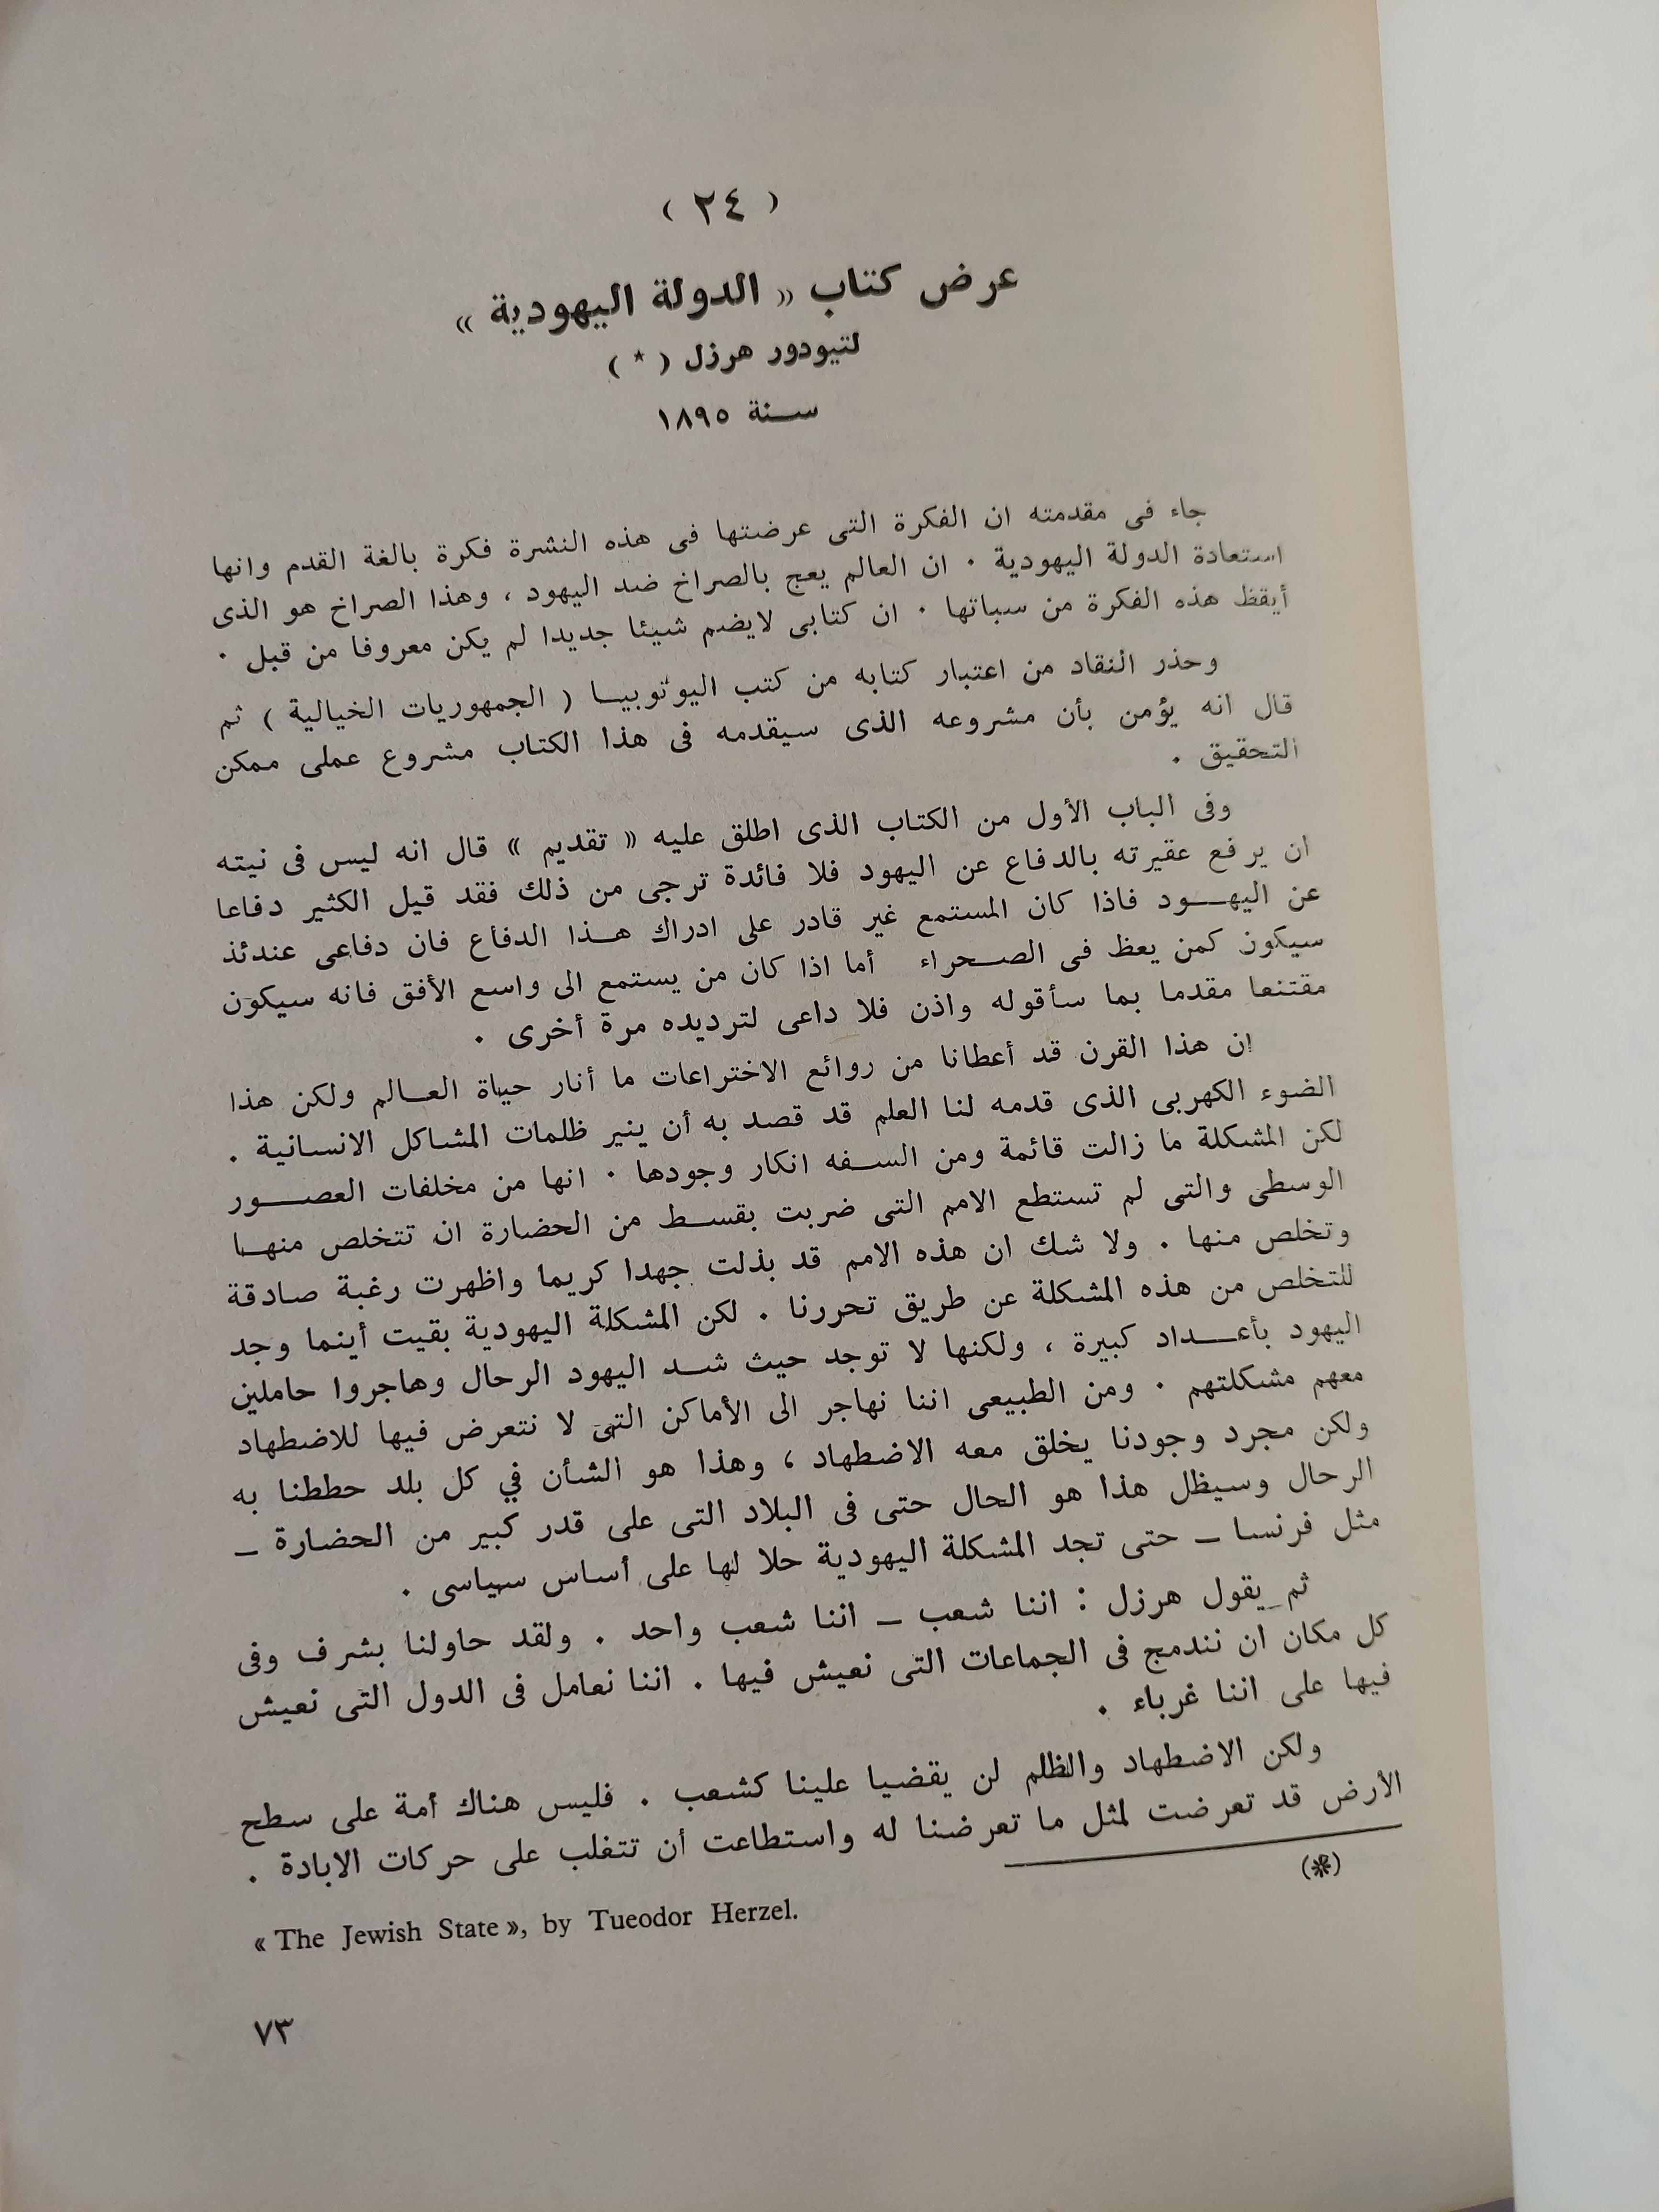 ( ٢٤ )
عرض كتاب « الدولة اليهودية »
لتيودور هرزل ( * )
سـنة ١٨٩٥
جاء فى مقدمته ان الفكرة التى عرضتها فى هذه النشرة فكرة بالغة القدم وانها
استعادة الدولة اليهودية . ان العالم يعج بالصراخ ضد اليهود ، وهذا الصراخ هو الذى
أيقظ هذه الفكرة من سباتها . ان كتابى لايضم شيئا جديدا لم يكن معروفا من قبل .
وحذر النقاد من اعتبار كتابه من كتب اليوتوبيـا ( الجمهوريات الخيالية ) ثم
قال انه يؤمن بأن مشروعه الذى سيقدمه فى هذا الكتاب مشروع عملى ممكن
التحقيق .
وفى الباب الأول من الكتاب الذى اطلق عليه « تقديم » قال انه ليس فى نيته
ان يرفع عقيرته بالدفاع عن اليهود فلا فائدة ترجى من ذلك فقد قيل الكثير دفاعا
عن اليهـــود فاذا كان المستمع غير قادر على ادراك هـذا الدفاع فان دفاعى عندئذ
سيكون كمن يعظ فى الصـحراء أما اذا كان من يستمع الى واسع الأفق فانه سيكون
مقتنعا مقدما بما سأقوله واذن فلا داعى لترديده مرة أخرى .
ان هذا القرن قد أعطانا من روائع الاختراعات ما أنار حياة العـالم ولكن هذا
الضوء الكهربى الذى قدمه لنا العلم قد قصد به أن ينير ظلمات المشاكل الانسانية .
لكن المشكلة ما زالت قائمة ومن السـفه انكار وجودها . انها من مخلفات العصـــور
الوسطى والتى لم تستطع الامم التى ضربت بقسـط من الحضارة ان تتخلص منهـا
وتخلص منها . ولا شك ان هذه الامم قد بذلت جهدا كريما واظهرت رغبة صادقة
للتخلص من هذه المشكلة عن طريق تحررنا . لكن المشكلة اليهودية بقيت أينما وجد
اليهود بأعـــداد كبيرة ، ولكنها لا توجد حيث شـد اليهود الرحال وهاجروا حاملين
معهم مشكلتهم . ومن الطبيعى اننا نهاجر الى الأماكن التى لا نتعرض فيها للاضطهاد
ولكن مجرد وجودنا يخلق معه الاضطهاد ، وهذا هو الشأن في كل بلد حططنا به
الرحال وسيظل هذا هو الحال حتى فى البلاد التى على قدر كبير من الحضارة ــ
مثل فرنسا ــ حتى تجد المشكلة اليهودية حلا لها على أساس سياسى .
ثم يقول هرزل : اننا شعب ــ اننا شعب واحد . ولقد حاولنا بشرف وفى
كل مكان ان نندمج فى الجماعات التى نعيش فيها . اننا نعامل فى الدول التى نعيش
فيها على اننا غرباء .
ولكن الاضطهاد والظلم لن يقضيا علينا كشعب . فليس هناك أمة على سطح
الأرض قد تعرضت لمثل ما تعرضنا له واستطاعت أن تتغلب على حركات الابادة .
(*)
« The Jewish State », by Tueodor Herzel.
٧٣